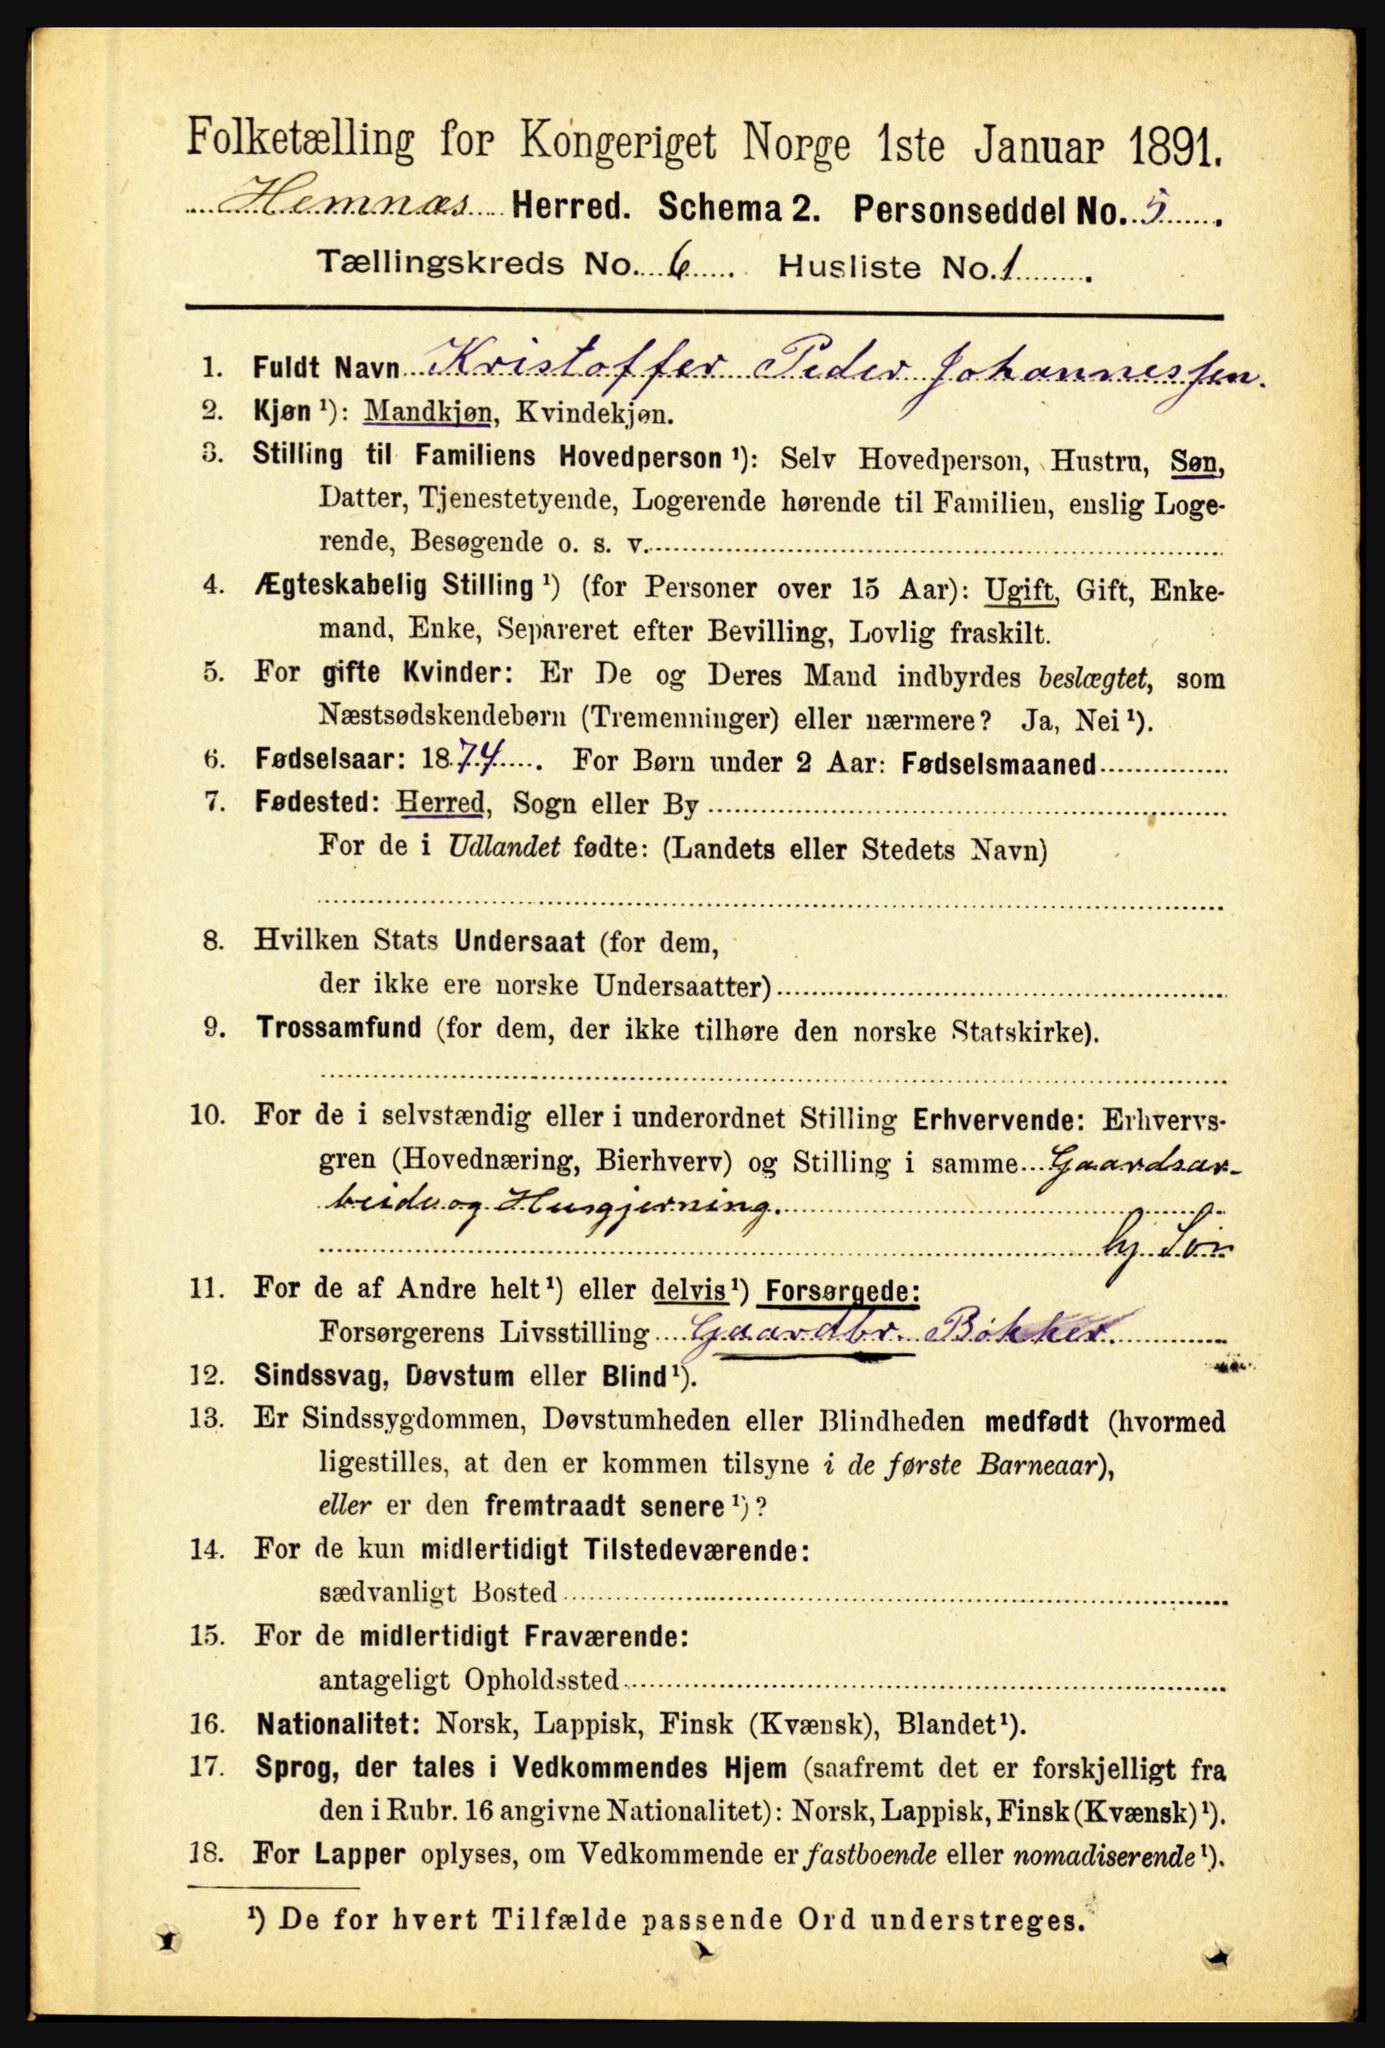 Folketælling for Kongeriget Norge 1ste Januar 1891.
Hemnæs Herred. Schema 2. Personseddel No. 5.
Tællingskreds No. 6. Husliste No. 1.
1. Fuldt Navn Kristoffer Peder Johannessen.
2. Kjøn¹): Mandkjøn, Kvindekjøn.
3. Stilling til Familiens Hovedperson¹): Selv Hovedperson, Hustru, Søn,
Datter, Tjenestetyende, Logerende hørende til Familien, enslig Loge-
rende, Besøgende o. s. v.
4. Ægteskabelig Stilling¹) (for Personer over 15 Aar): Ugift, Gift, Enke-
mand, Enke, Separeret efter Bevilling, Lovlig fraskilt.
5. For gifte Kvinder: Er De og Deres Mand indbyrdes beslægtet, som
Næstsødskendebørn (Tremenninger) eller nærmere? Ja, Nei¹).
6. Fødselsaar: 1874. For Børn under 2 Aar: Fødselsmaaned
7. Fødested: Herred, Sogn eller By
For de i Udlandet fødte: (Landets eller Stedets Navn)
8. Hvilken Stats Undersaat (for dem,
der ikke ere norske Undersaatter)
9. Trossamfund (for dem, der ikke tilhøre den norske Statskirke).
10. For de i selvstændig eller i underordnet Stilling Erhvervende: Erhvervs-
gren (Hovednæring, Bierhverv) og Stilling i samme Gaardsar-
beide og Husgjerning.
hj. Søn
11. For de af Andre helt¹) eller delvis¹) Forsørgede:
Forsørgerens Livsstilling Gaardbr. Bøkker.
12. Sindssvag, Døvstum eller Blind¹).
13. Er Sindssygdommen, Døvstumheden eller Blindheden medfødt (hvormed
ligestilles, at den er kommen tilsyne i de første Barneaar),
eller er den fremtraadt senere¹)?
14. For de kun midlertidigt Tilstedeværende:
sædvanligt Bosted
15. For de midlertidigt Fraværende:
antageligt Opholdssted
16. Nationalitet: Norsk, Lappisk, Finsk (Kvænsk), Blandet¹).
17. Sprog, der tales i Vedkommendes Hjem (saafremt det er forskjelligt fra
den i Rubr. 16 angivne Nationalitet): Norsk, Lappisk, Finsk (Kvænsk)¹).
18. For Lapper oplyses, om Vedkommende er fastboende eller nomadiserende¹).
¹) De for hvert Tilfælde passende Ord understreges.